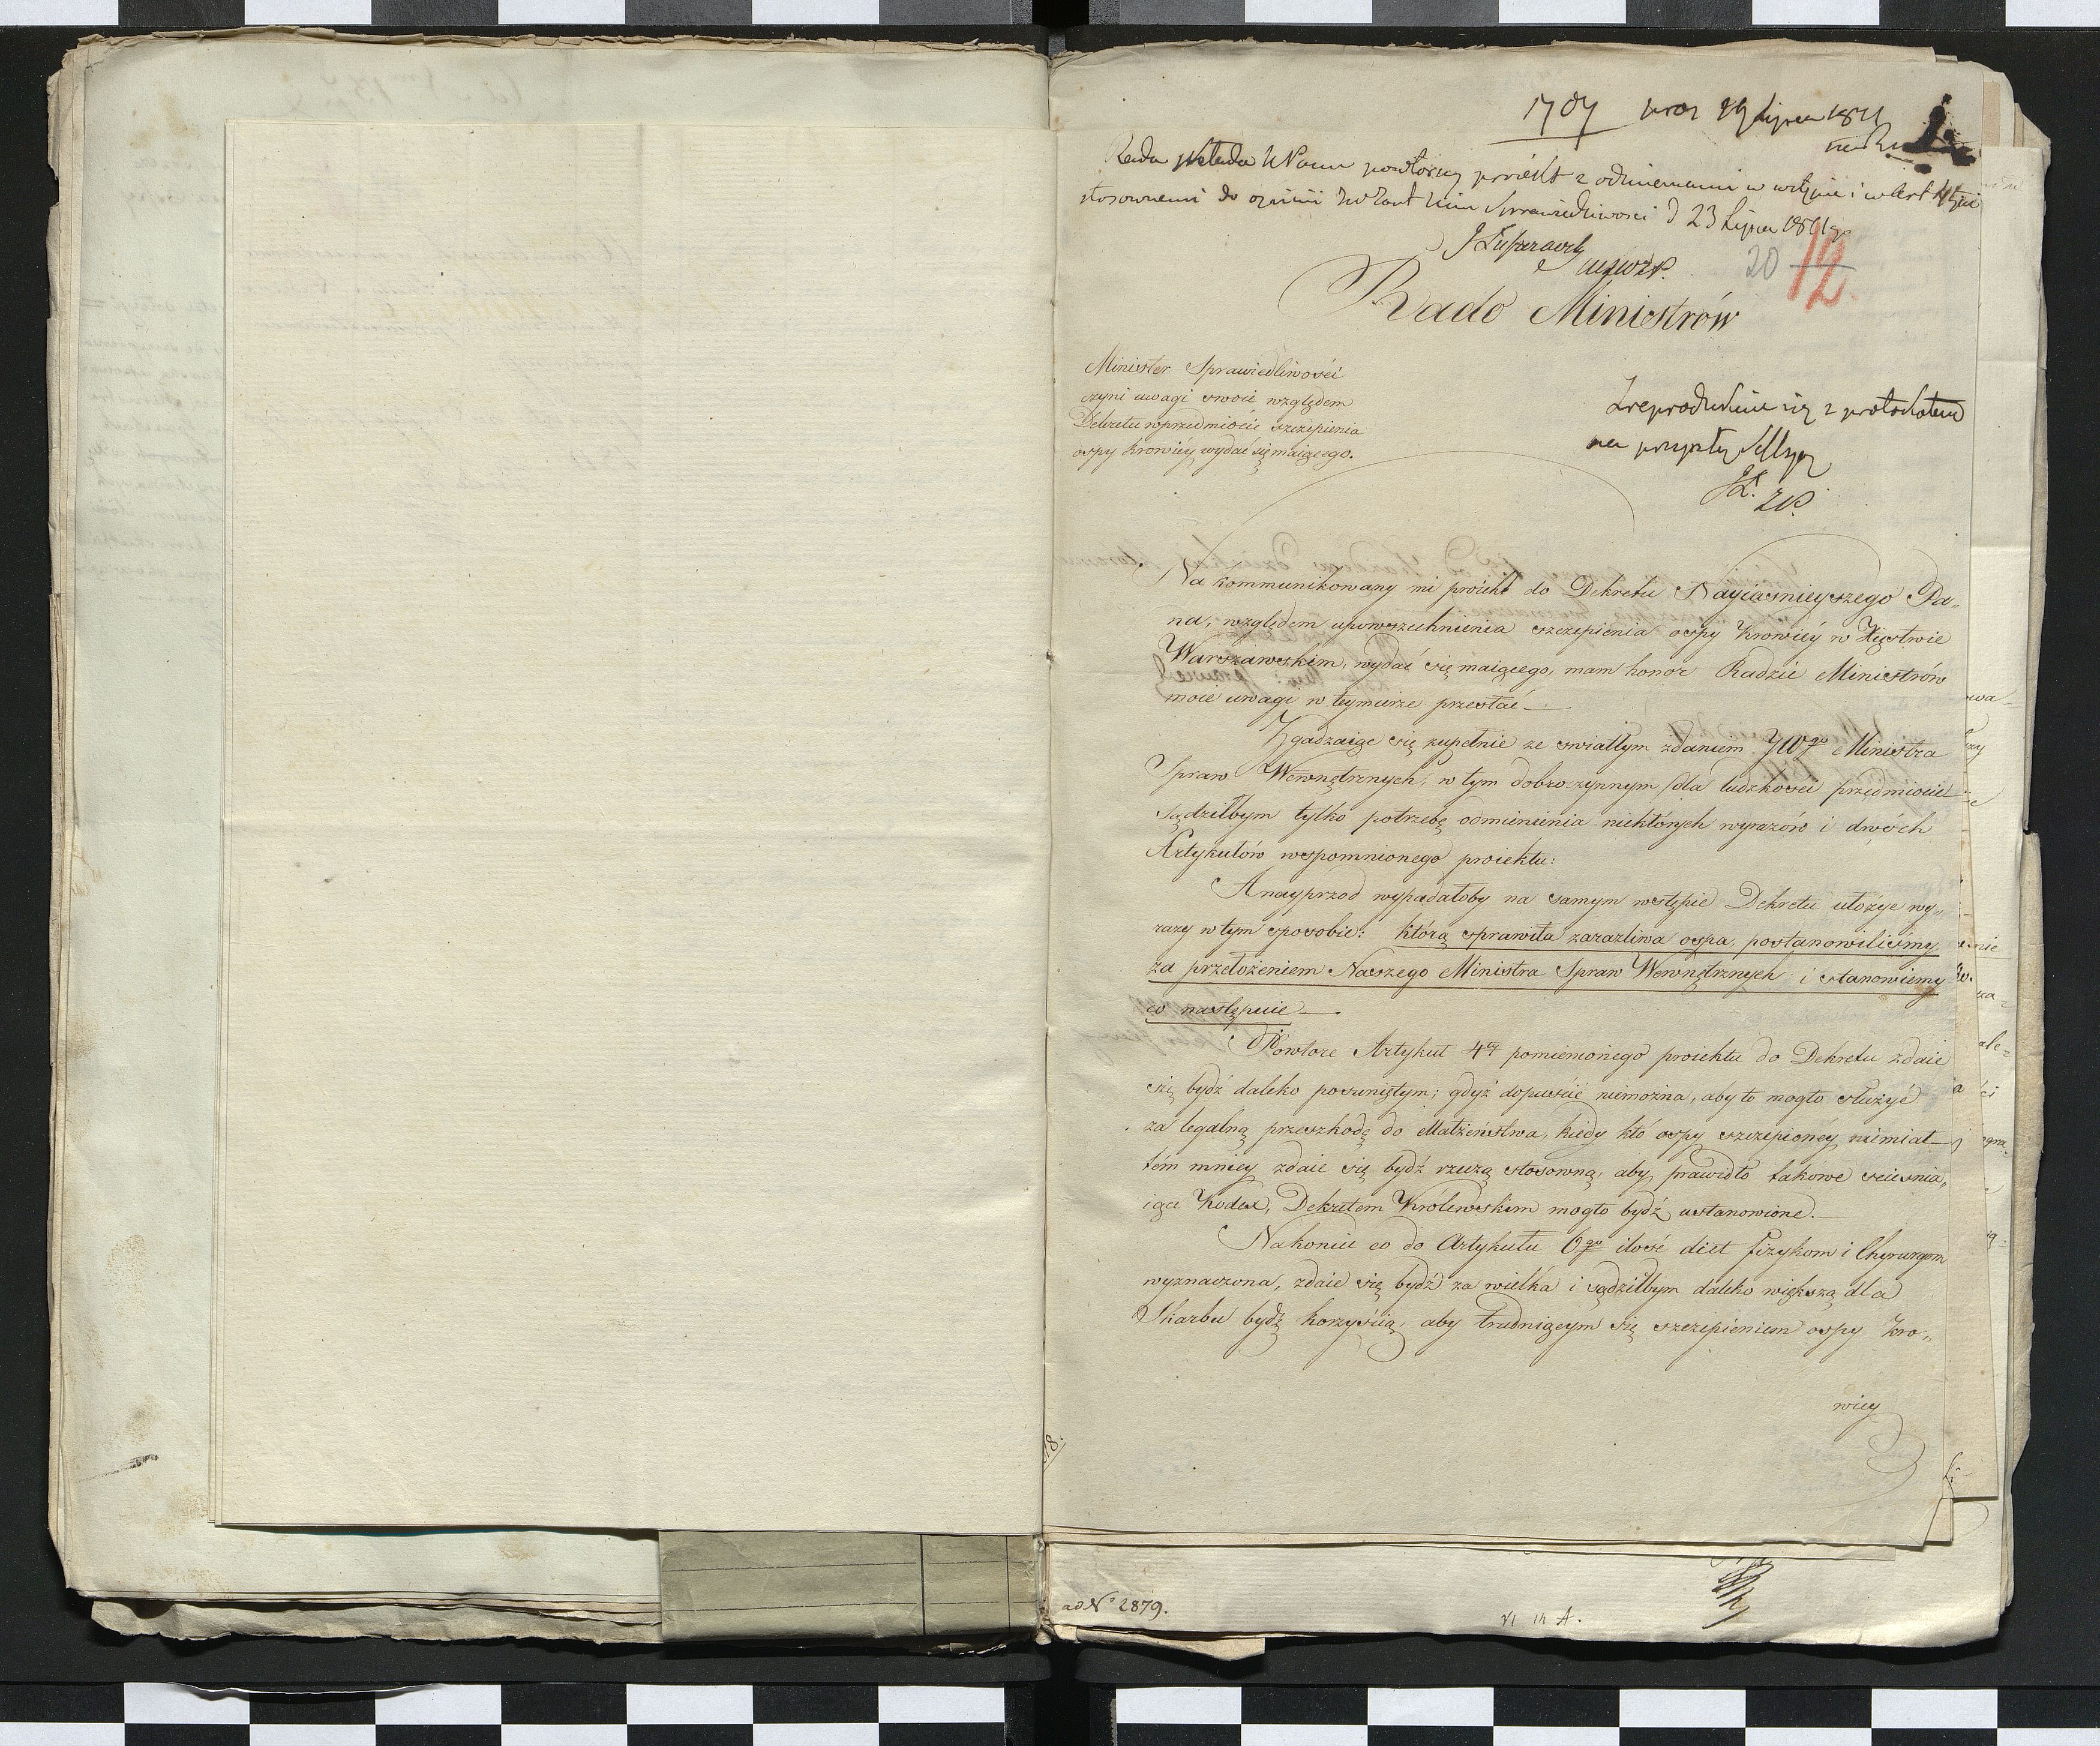 1707 19 Lipca 1811
Rada składa powtórny proiekt z odmienieniami w wstępie i w Art
stosownemi do opinii Sprawiedliwosci d 23 Lipca 1811
20 12
Rado Ministrów
Minister Sprawiedliwości
czyni uwagi swoie względem
Dekretu w przedmiocie szczepienia
ospy krowiéy wydać się maiącego.
z protokołem
na przyszłą Sessyą
Na kommunikowany mi proiekt do Dekretu Nayiasnieyszego Pa„
na, względem upowszechnienia szczepienia ospy krowiéy w Xięstwie
Warszawskim, wydać się maiącego, mam honor Radzie Ministrów
moie uwagi w teymierze przesłać —
Zgadzaiąc się zupełnie ze swiatłym zdaniem JWgo Ministra
Spraw Wewnętrznych, w tym dobroczynnym dla ludzkosci przedmiocie
sądziłbym tylko potrzebę odmienienia niektórych wyrazów i dwóch
Artykułów wspomnionego proiektu:
A nayprzod wypadałoby na samym wstępie Dekretu ułożyć wy„
razy w tym sposobie: którą sprawiła zaraźliwa ospa, postanowiliśmy
za przełożeniem Naszego Ministra Spraw Wewnętrznych i stanowiemy
co następuie —
Powtore Artykuł 4ty pomienionego proiektu do Dekretu zdaie
się bydź daleko posuniętym; gdyż dopuścić niemożna, aby to mogło służyć
za legalną przeszkodę do Małżeństwa, kiedy kto ospy szczepioney niemiał —
tém mniey zdaie się bydź rzeczą stosowną, aby prawidło takowe sciesnia„
iące Kodex, Dekretem Królewskim mogło bydź ustanowione. —
Nakoniec co do Artykułu 6go ilość diet fizykom i Chyrurgom
wyznaczona, zdaie się bydź za wielka i sądziłbym daleko większą dla
Skarbu bydź korzyścią, aby trudniącym się szczepieniem ospy kro„
wiey
ad No 2879.